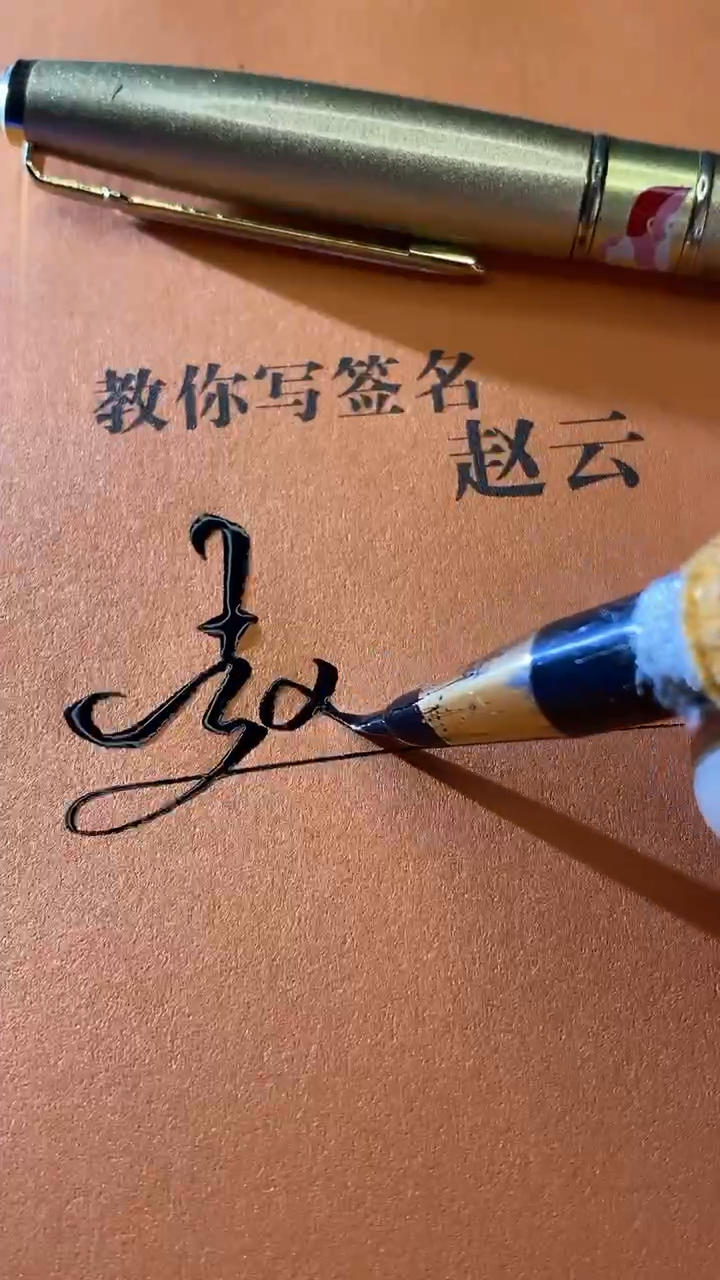 教你写签名
赵云